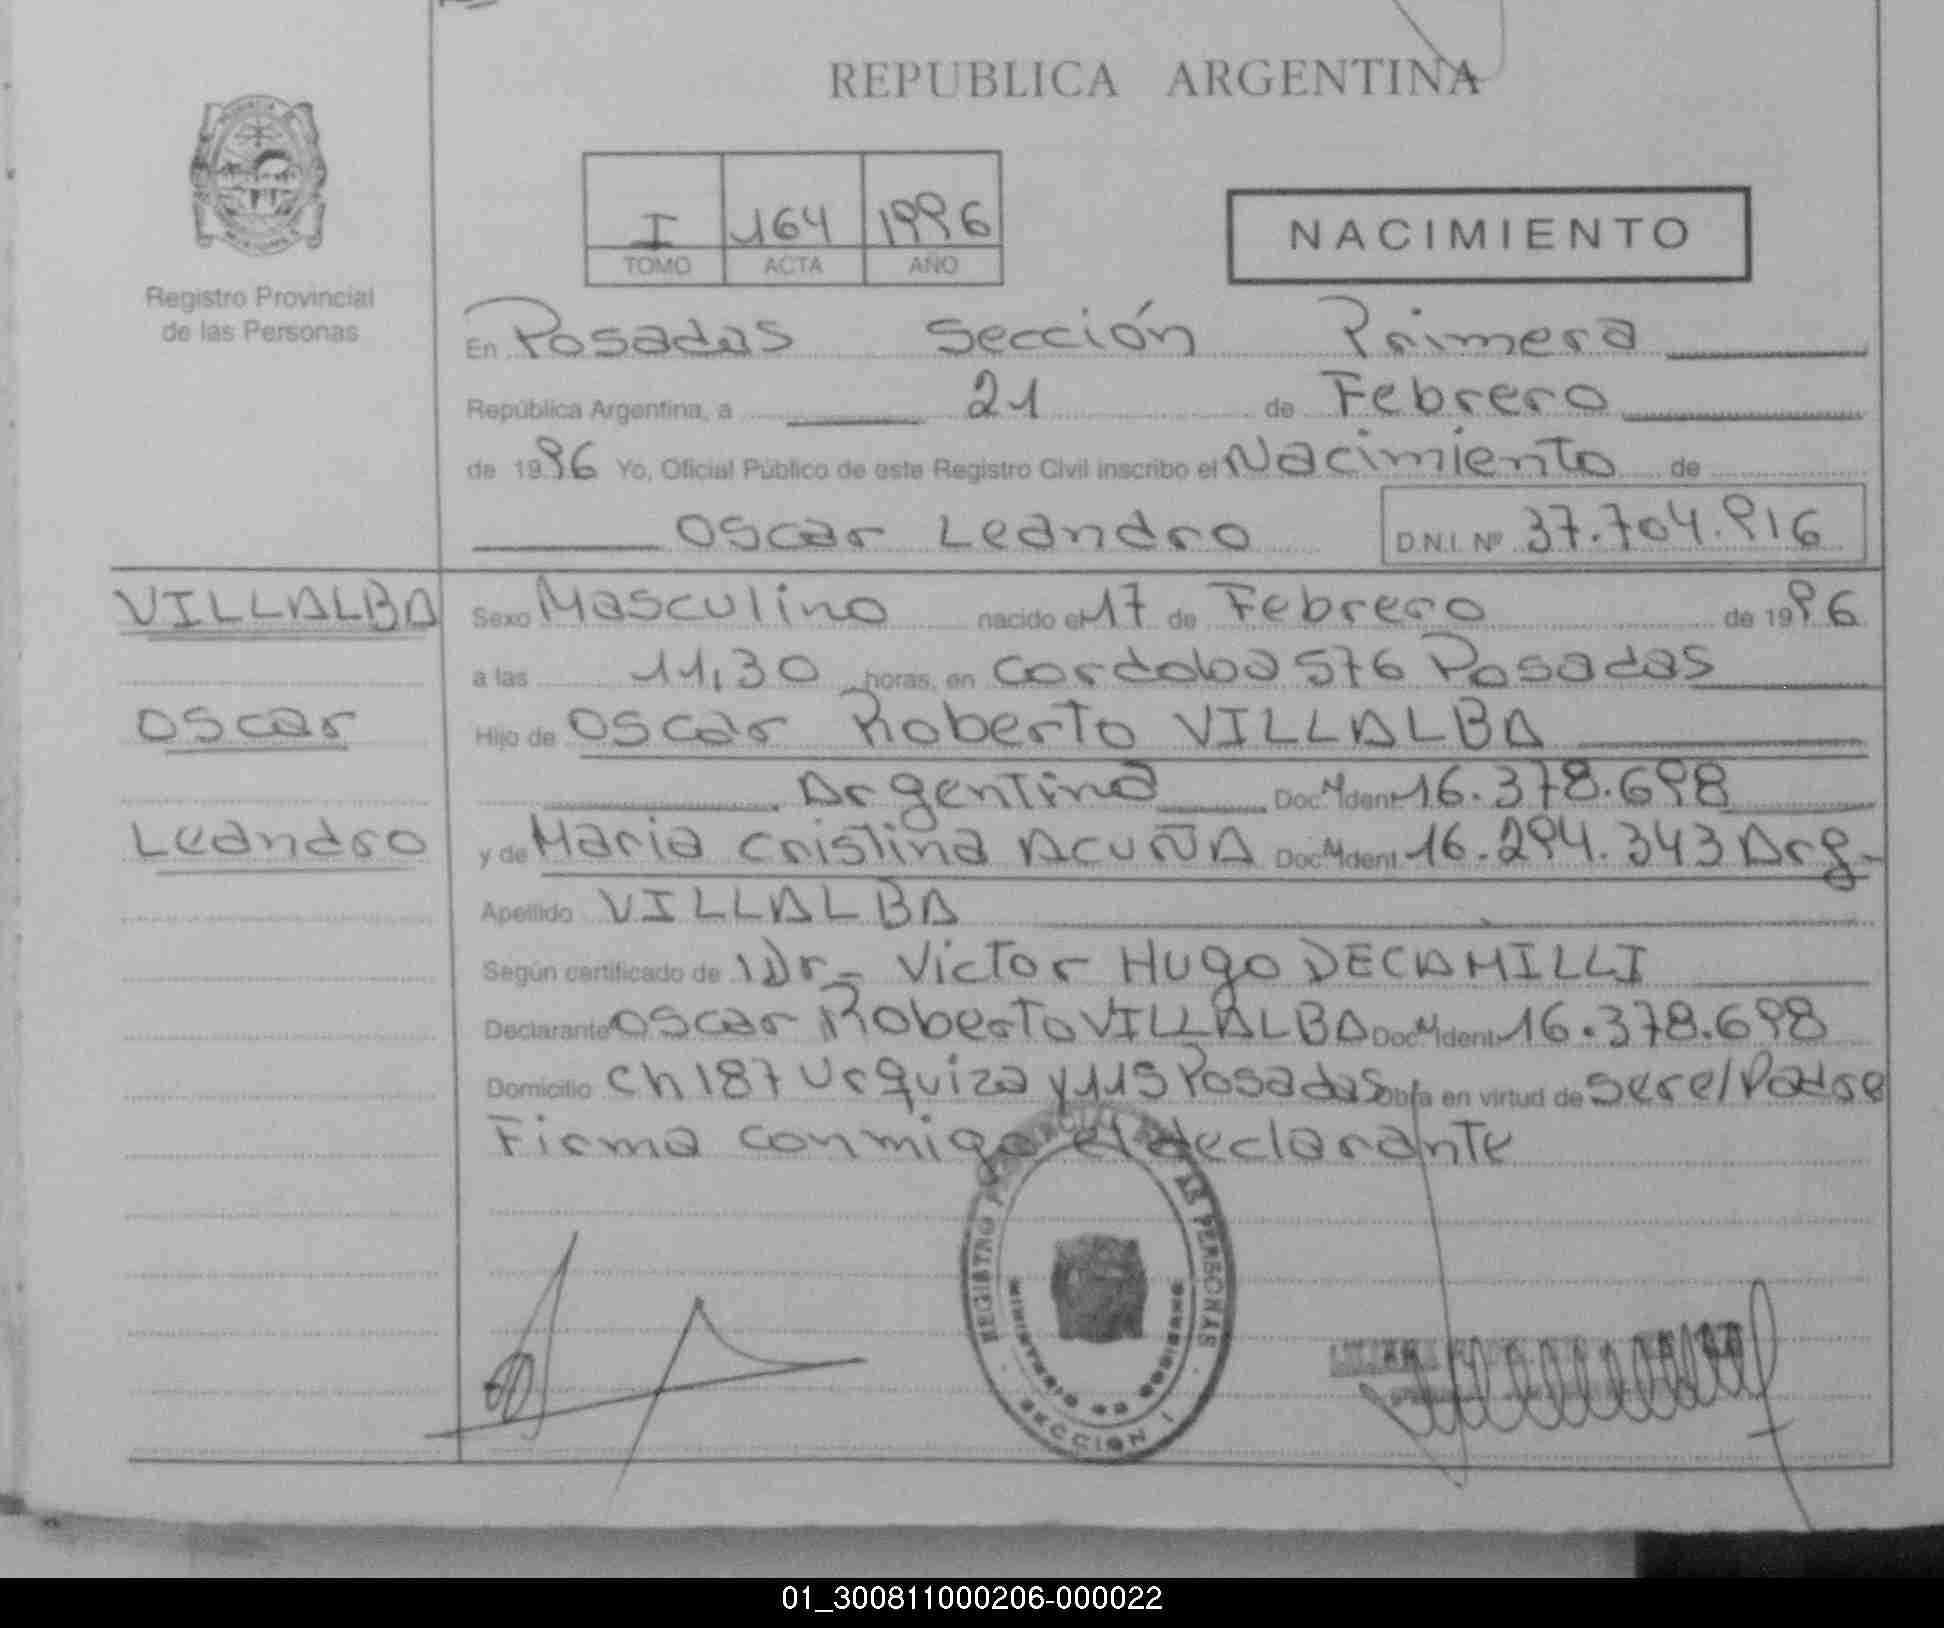 REPUBLICA ARGENTINA
I 164 1996
TOMO ACTA AÑO
NACIMIENTO
Registro Provincial
de las Personas
En Posadas Sección Primera
República Argentina, a 21 de Febrero
de 1996 Yo, Oficial Público de este Registro Civil inscribo el Nacimiento de
Oscar Leandro D.N.I. Nº 37.704.916
VILLALBA
Oscar
Leandro
Sexo Masculino nacido el 17 de Febrero de 1996
a las 11,30 horas, en Cordoba 576 Posadas
Hijo de Oscar Roberto VILLALBA
Argentina Doc. Ident. 16.378.698
y de Maria Cristina ACUÑA Doc. Ident. 16.294.343 Arg.
Apellido VILLALBA
Según certificado de Dr. Victor Hugo DECAMILLI
Declarante Oscar Roberto VILLALBA Doc. Ident. 16.378.698
Domicilio Ch 187 Urquiza y 115 Posadas Obra en virtud de ser el Padre
Firma conmigo el declarante
REGISTRO PROVINCIAL DE LAS PERSONAS
MINISTERIO DE GOBIERNO
SECCION I
01_300811000206-000022